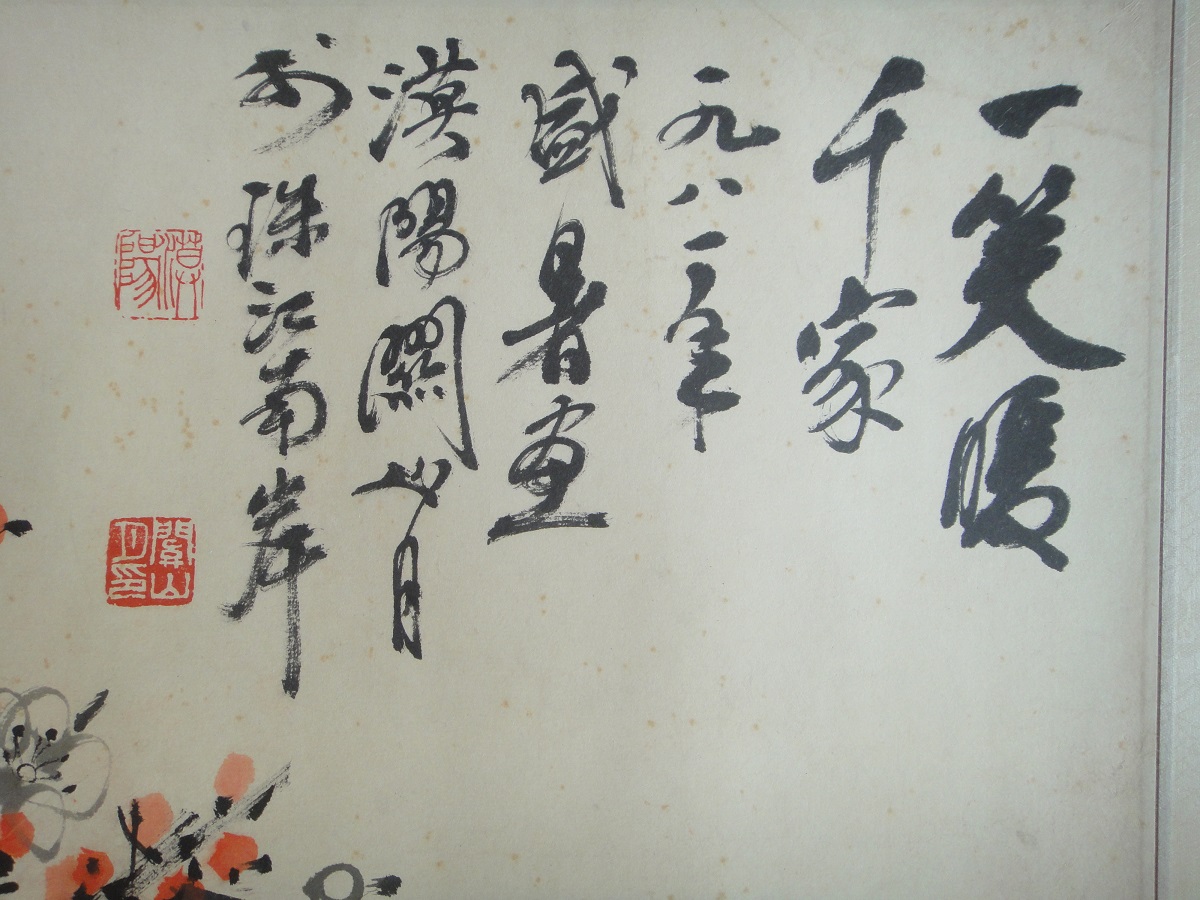 一笑暖
千家
一九八二年
盛暑畫
漠陽關山月
於珠江南岸
漠陽
關山月印